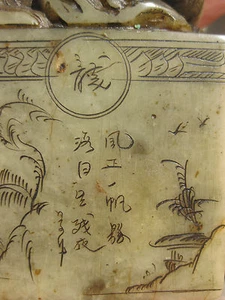 風正一帆懸
海日生殘夜